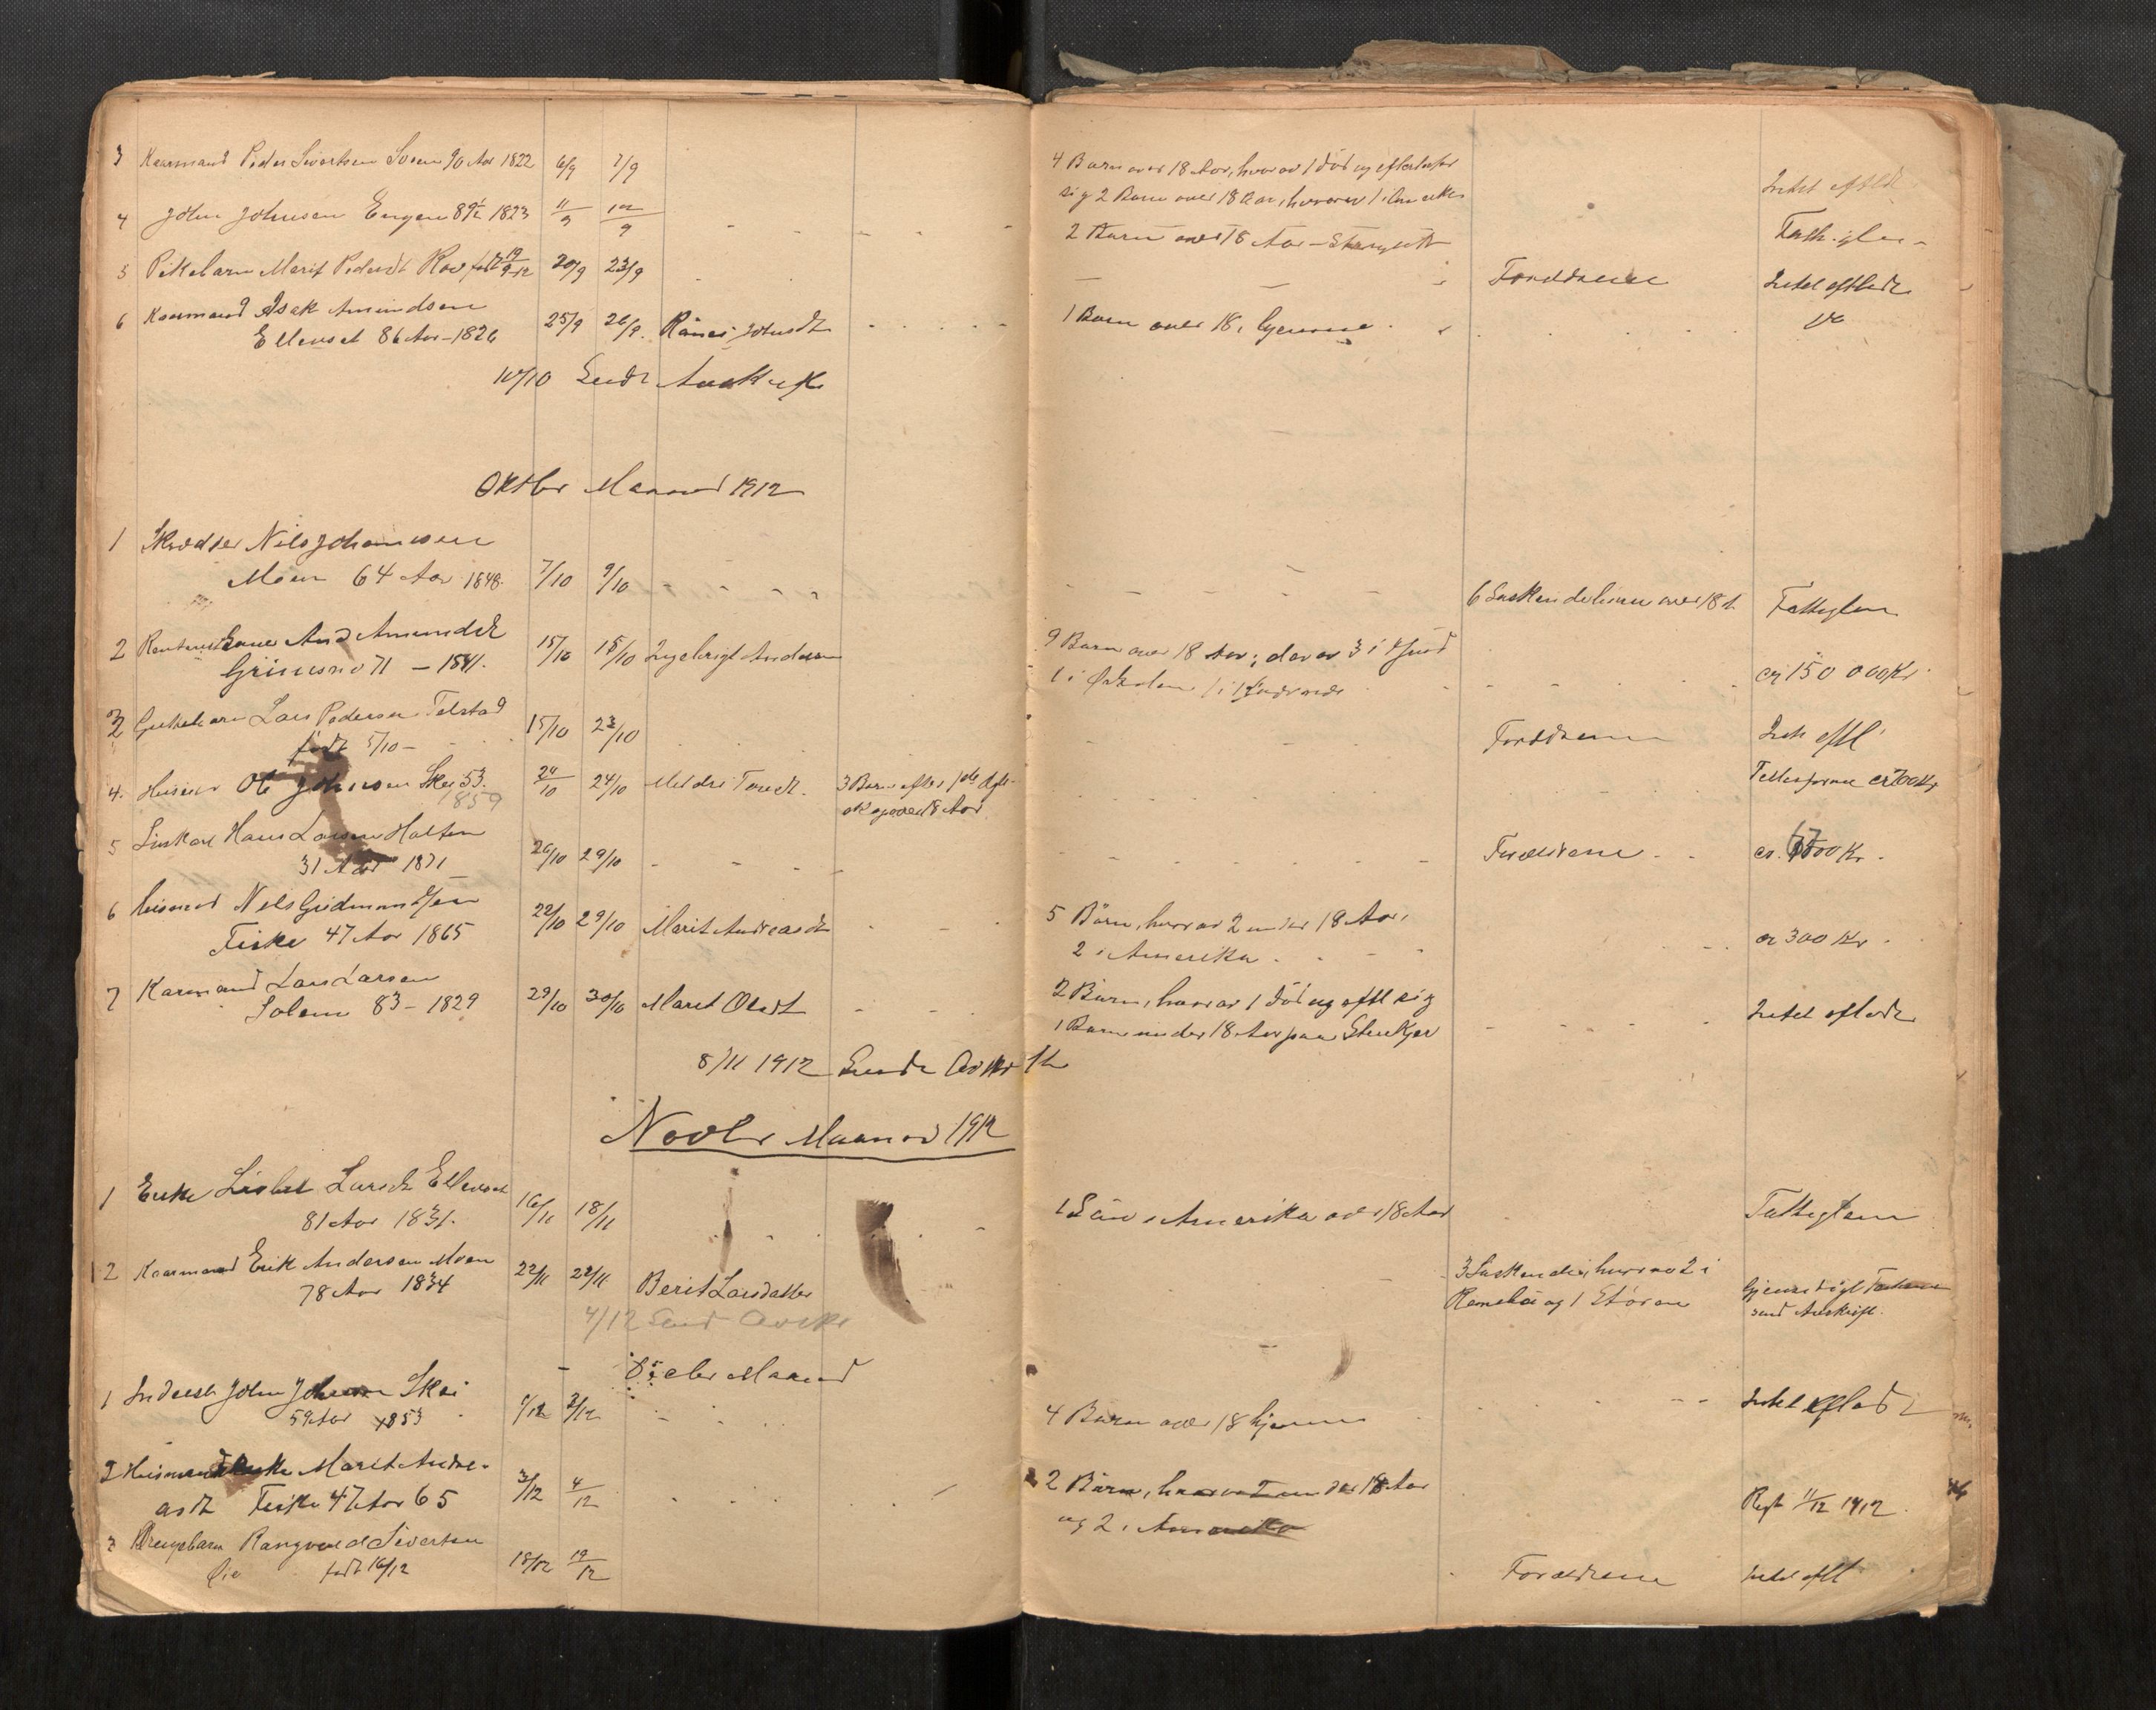 3 Kaarmand Peder Sivertsen Sveen 90 Aar 1822 6/9 7/9
4 Børn over 18 Aar, hvorav 1 död og efterlader
sig 2 Børn over 18 Aar, hvorav 1 i Amerika
Intet efterl
4 John Johnsen Engen 89 1/2 1823 11/9 12/9
2 Børn over 18 Aar
5 Pikebarn Marit Pedersdt Roe født 19/9-12 20/9 23/9
Forældrene
Intet efterladt
6 Kaarmand Isak Amundsen
Ellevset 86 Aar - 1826 25/9 26/9 Johnsdt
1 Barn over 18, hjemme
do
10/10 Sendt Avskrift
Oktbr Maaned 1912
1 Skrædder Nils Johannesen
Moen 64 Aar 1848 7/10 9/10
6 Søskendebørn over 18 A
Fattiglem
2 And Amundsdt
Grimsmo 71 - 1841 15/10 18/10 Ingebrigt Andersen
9 Børn over 18 Aar; derav 3 i
1 i 1 i
ca 150 000 Kr
3 Gutebarn Lars Pedersen Talstad
født 5/10 - 15/10 23/10
Forældrene
Intt eftl
4. Husmd Ole Johnsen Skei 53
1859
20/10 24/10 Meldri Toredt. 3 Børn efter 1ste Ægte-
sk og over 18 Aar
ca 700 Kr
5 Hans Larsen Halten
31 Aar 1871 26/10 29/10
Forældrene
ca. 6700 Kr.
6 Husmand Nils Gudmundsen
Fiske 47 Aar 1865 22/10 29/10 Marit Andreasdt
5 Børn, hvorav 2 under 18 Aar,
2 i Amerika
ca 300 Kr.
7 Kaarmand Lars Larsen
Solem 83 - 1829 29/10 30/10 Marit Olsdt
2 Børn, hvorav 1 död og eftl sig
1 Barn under 18 Aar paa Stenkjær
Intet efterladt
8/11 1912 Sendt Avskrift
Novbr Maaned 1912
1 Enke Lisbet Larsdt Ellevset
81 Aar 1831. 16/11 18/11
1 Søn i Amerika over 18 Aar
Fattiglem
2 Kaarmand Erik Andersen Moen
78 Aar 1834 22/11 28/11 Berit Larsdatter
3 Søskende, hvorav 2 i
og 1 Støren
Gjensidigt
send Avskrift.
4/12 Send Avskr
Decbr Maaned
1 Inderst John Johnsen Skei
59 Aar 1853 1/12 2/12
4 Børn over 18 hjemme
Intet efterladt
2 Husmandsenke Marit Andre-
asdt Fiske 47 Aar 65 3/12 4/12
2 Børn, hvorav 1 under 18 Aar
og 2 i Amerika
Regt 11/12 1912
3 Drengebarn Rangvald Sivertsen
Øie født 16/12 18/12 19/12
Forældrene
Intet eftl